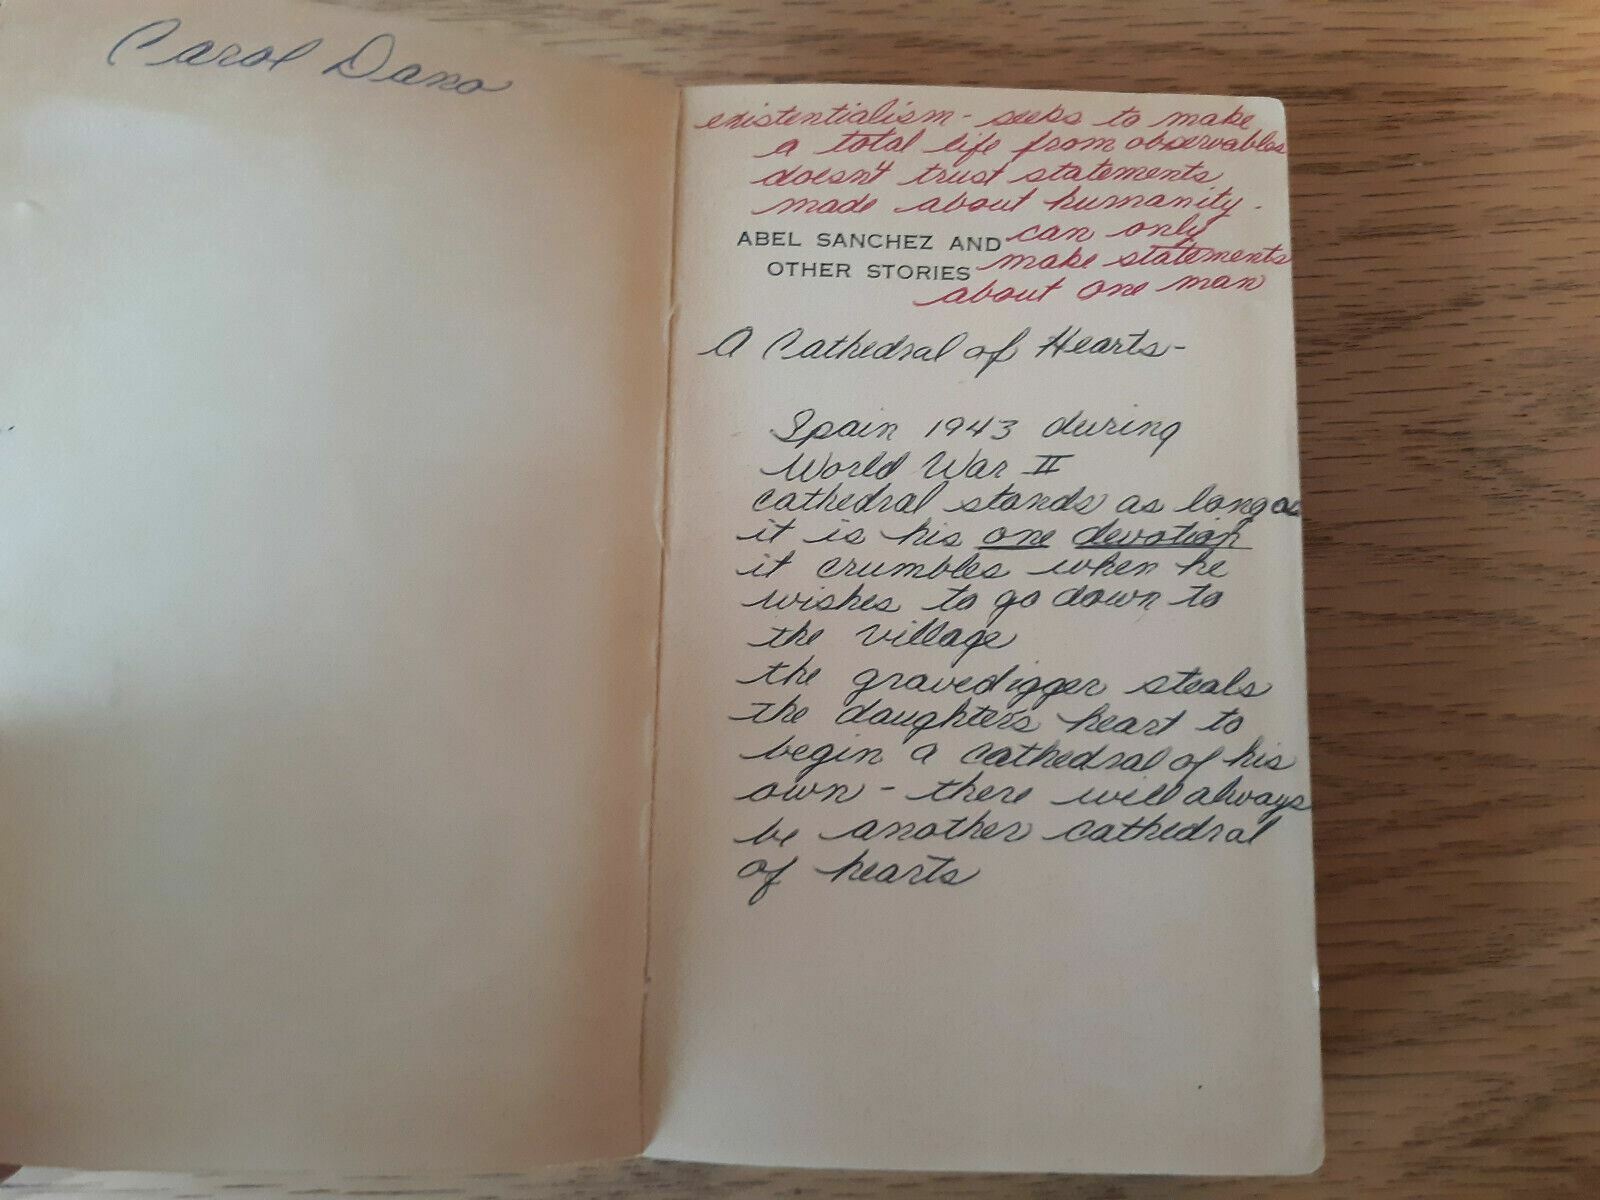 Carol Dano
existentialism - seeks to make
a total life from observables
doesn't trust statements
made about humanity.
ABEL SANCHEZ AND can only
OTHER STORIES make statements
about one man
A Cathedral of Hearts-
Spain 1943 during
World War II
cathedral stands as long as
it is his one devotion
it crumbles when he
wishes to go down to
the village
the gravedigger steals
the daughter's heart to
begin a cathedral of his
own - there will always
be another cathedral
of hearts